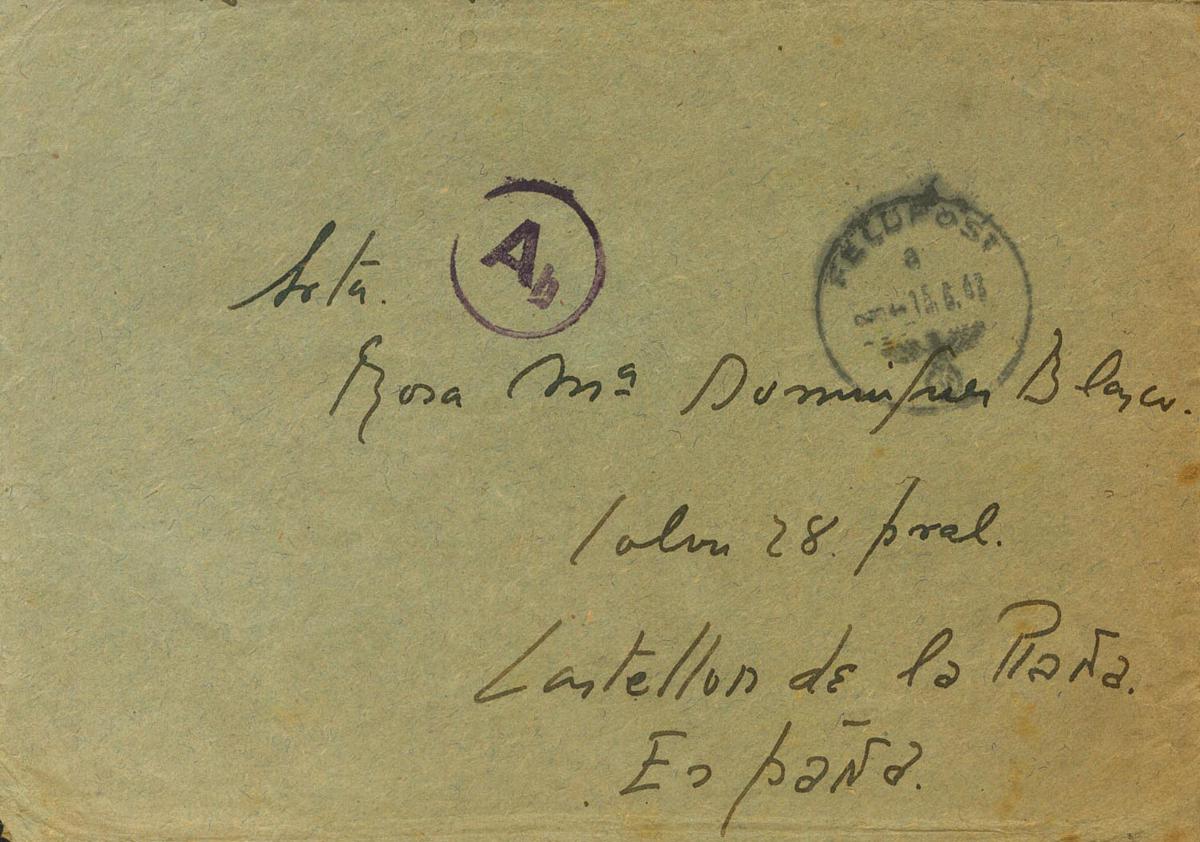 Srta.
Ab
FELDPOST
a
15.6.43
Rosa Mª Dominguez Blasco.
Colon 28. pral.
Castellon de la Plaña.
España.